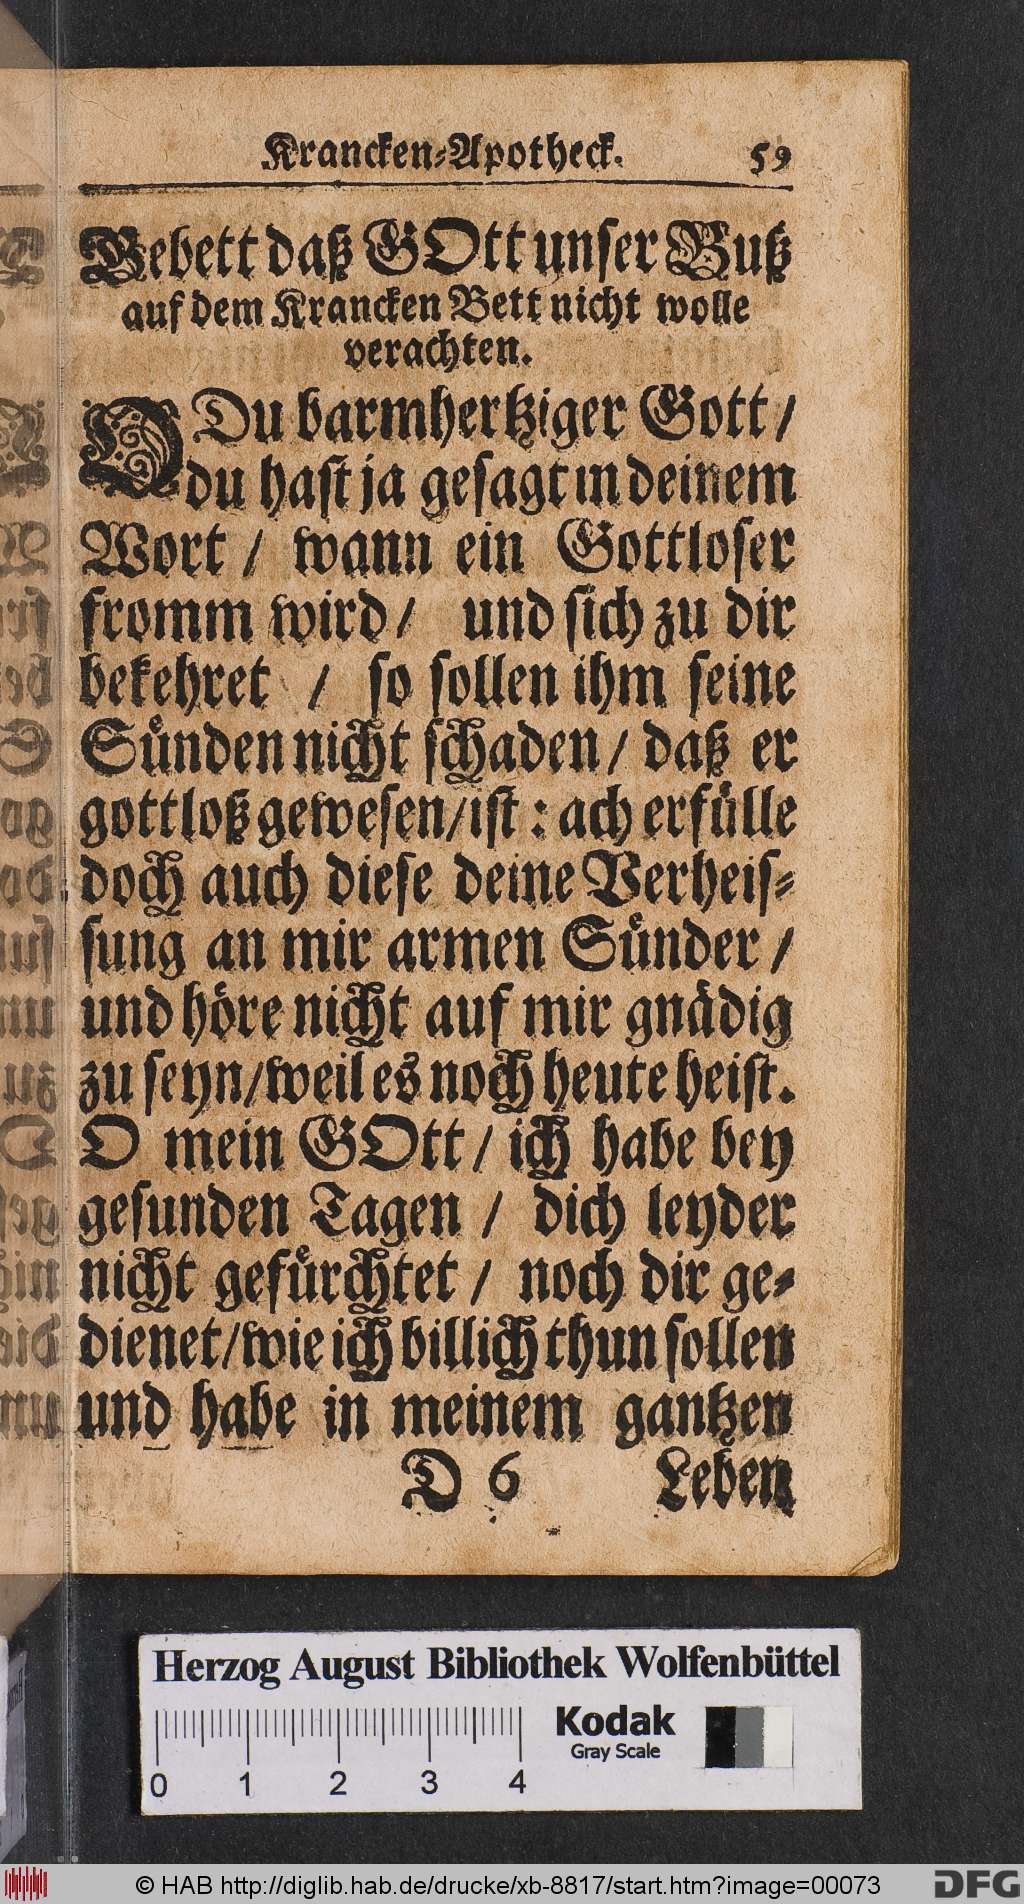 Krancken-Apotheck. 59
Gebett daß GOtt unser Buß
auf dem Krancken Bett nicht wolle
verachten.
O Du barmhertziger Gott /
du hast ja gesagt in deinem
Wort / wann ein Gottloser
fromm wird / und sich zu dir
bekehret / so sollen ihm seine
Sünden nicht schaden / daß er
gottloß gewesen / ist : ach erfülle
doch auch diese deine Verheis-
sung an mir armen Sünder /
und höre nicht auf mir gnädig
zu seyn / weil es noch heute heist.
O mein GOtt / ich habe bey
gesunden Tagen / dich leyder
nicht gefürchtet / noch dir ge-
dienet / wie ich billich thun sollen
und habe in meinem gantzen
D 6 Leben
Herzog August Bibliothek Wolfenbüttel
Kodak
Gray Scale
0 1 2 3 4
© HAB http://diglib.hab.de/drucke/xb-8817/start.htm?image=00073
DFG